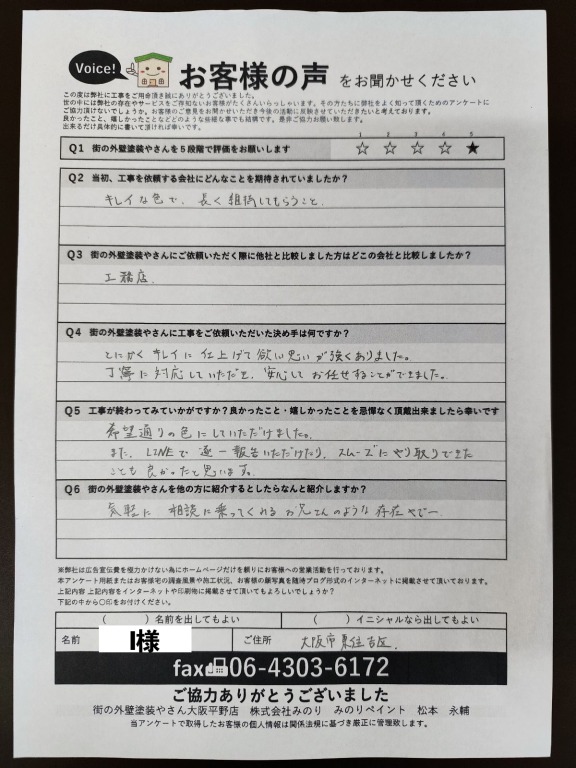 Voice!
お客様の声 をお聞かせください
この度は弊社に工事をご用命頂き誠にありがとうございました。
世の中には弊社の存在やサービスをご存知ないお客様がたくさんいらっしゃいます。その方たちに弊社をよく知って頂くためのアンケートに
ご協力頂けないでしょうか。お客様のご意見をお聞かせいただき今後の活動に反映させていただきたいと考えております。
良かったこと、嬉しかったことなどどのような些細な事でも結構です。是非ご協力お願い致します。
出来るだけ具体的に書いて頂ければ幸いです。
1 2 3 4 5
Q1 街の外壁塗装やさんを5段階で評価をお願いします ☆ ☆ ☆ ☆ ★
Q2 当初、工事を依頼する会社にどんなことを期待されていましたか?
キレイな色で、長く維持してもらうこと。
Q3 街の外壁塗装やさんにご依頼いただく際に他社と比較しました方はどこの会社と比較しましたか?
工務店.
Q4 街の外壁塗装やさんに工事をご依頼いただいた決め手は何ですか?
とにかくキレイに仕上げて欲しい思いが強くありました。
丁寧に対応していただき、安心してお任せすることができました。
Q5 工事が終わってみていかがですか?良かったこと・嬉しかったことを忌憚なく頂戴出来ましたら幸いです
希望通りの色にしていただけました。
また、LINEで逐一報告いただけたり、スムーズにやり取りできた
ことも良かったと思います。
Q6 街の外壁塗装やさんを他の方に紹介するとしたらなんと紹介しますか?
気軽に相談に乗ってくれるお兄さんのような存在やでー
※弊社は広告宣伝費を極力かけない為にホームページだけを頼りにお客様への営業活動を行っております。
本アンケート用紙またはお客様宅の調査風景や施工状況、お客様の顔写真を随時ブログ形式のインターネットに掲載させて頂いております。
上記内容 上記内容をインターネットや印刷物に掲載させて頂いてもよろしいでしょうか?
下記の中から〇印をお付けください。
( )名前を出してもよい ( )イニシャルなら出してもよい
名前 I様 ご住所 大阪市東住吉区.
fax 06-4303-6172
ご協力ありがとうございました
街の外壁塗装やさん大阪平野店 株式会社みのり みのりペイント 松本 永輔
当アンケートで取得したお客様の個人情報は関係法規に基づき厳正に管理致します。